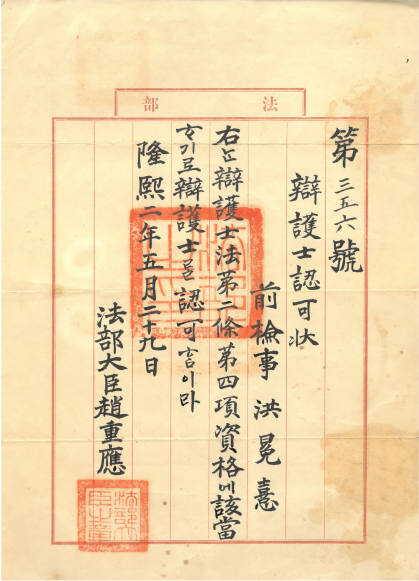 法部
第三五六號
辯護士認可狀
前檢事 洪冕憙
右ᄂᆞᆫ辯護士法第二條第四項資格에該當
ᄒᆞ기로辯護士를認可ᄒᆞᆷ이라
隆熙二年五月二十九日
法部大臣趙重應
法部大臣之章